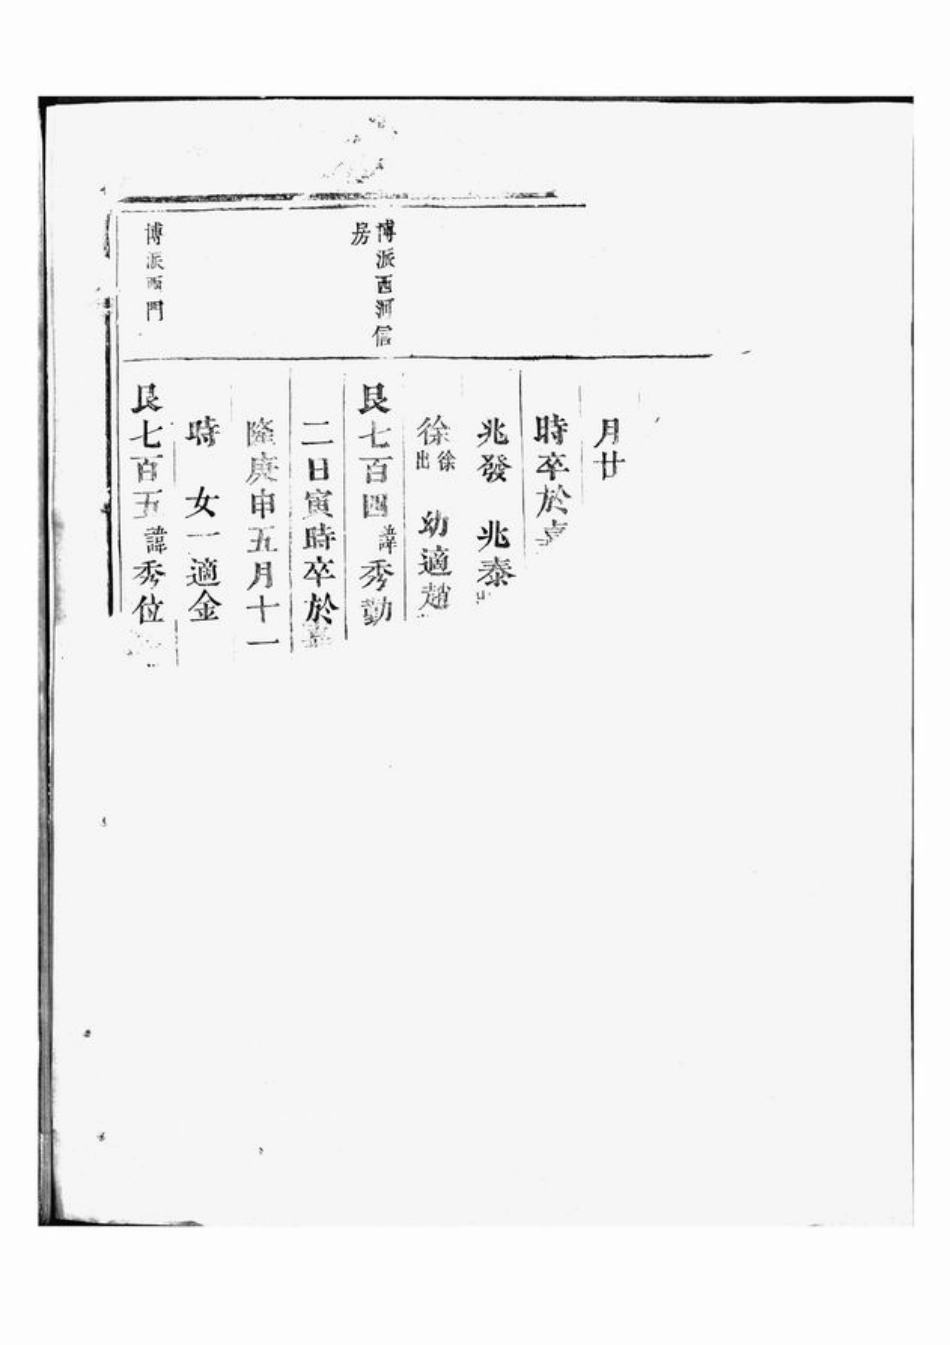 博派西河信
房
博派西門
月廿
時卒於
兆發　兆泰
徐徐出　幼適趙
艮七百四諱秀勤
二日寅時卒於嘉
隆庚申五月十一
時　女一適金
艮七百五諱秀位